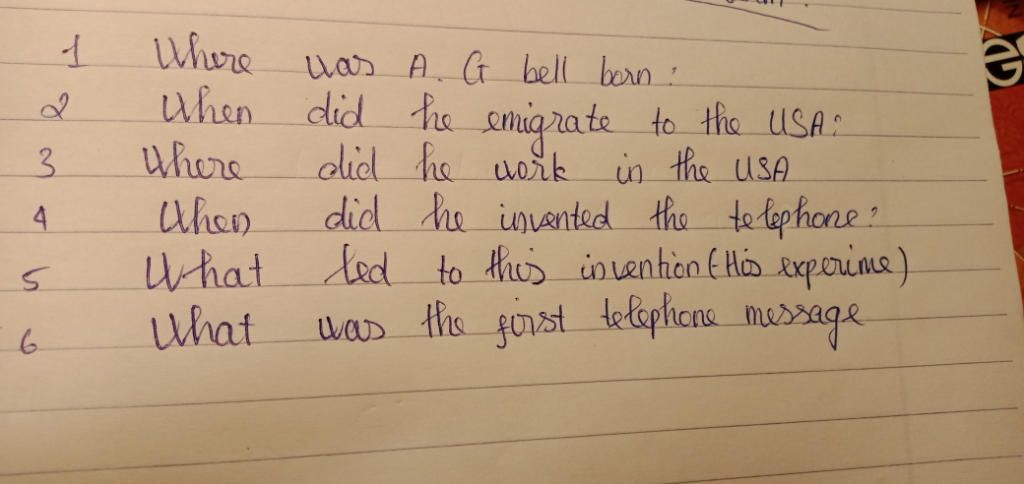 1 Where was A. G bell born?
2 When did he emigrate to the USA?
3 Where did he work in the USA
4 When did he invented the telephone?
5 What led to this invention (His experime)
6 What was the first telephone message